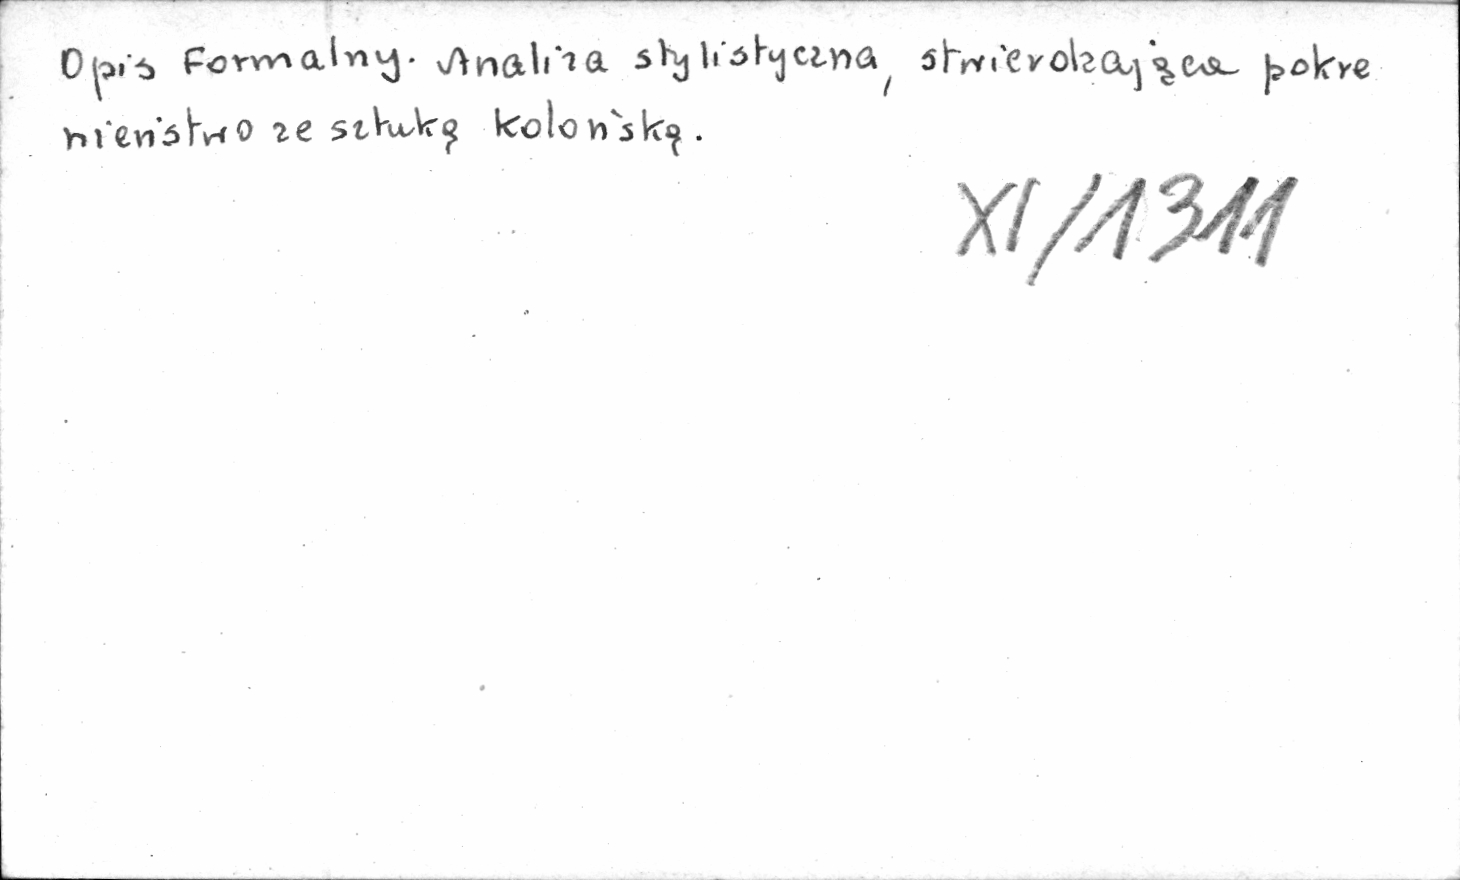 Opis Formalny. Analiza stylistyczna, stwierdzająca pokre
wieństwo ze sztuką kolońską.
XI/1311